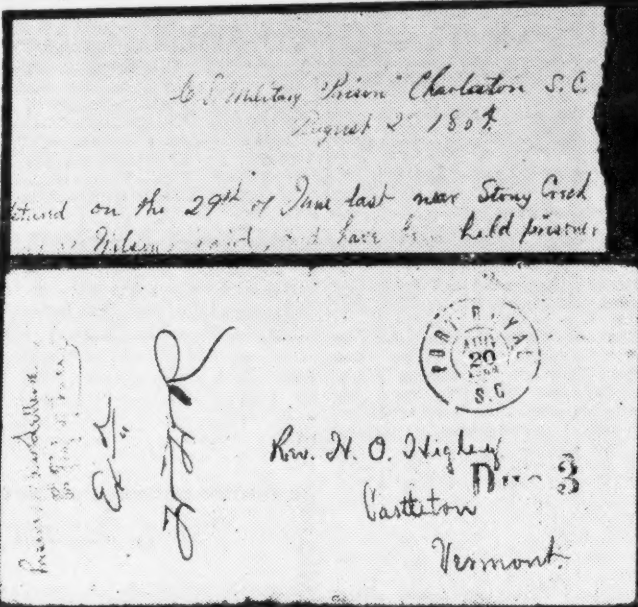 C S Military "Prison" Charleston S. C.
August 2 1864.
on the 29th of June last near Stony Creek
Wilson raid, and have been held prisoner
PORT ROYAL
20
S.C
Rev. H. O. Higley
Due 3
Castleton
Vermont.
Prisoner's Letter
Ex